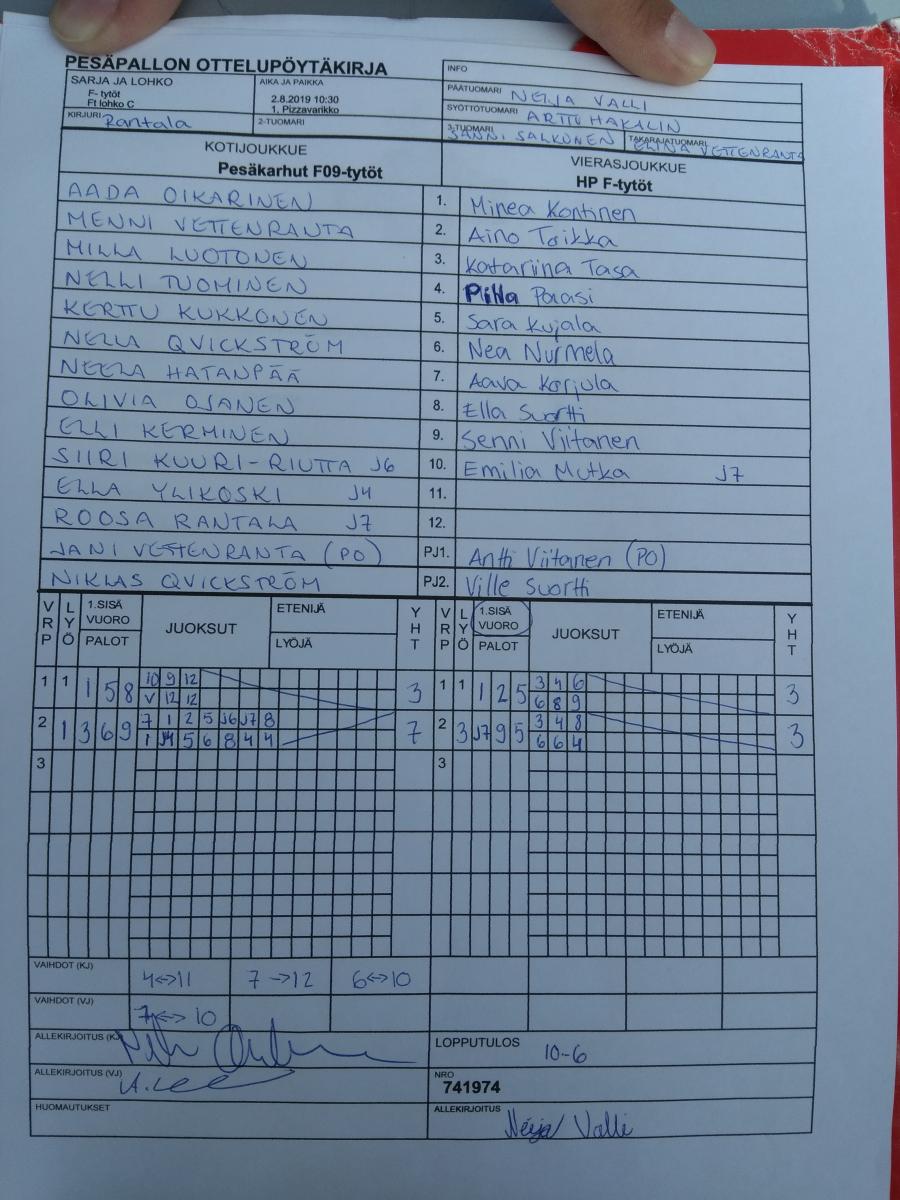 PESÄPALLON OTTELUPÖYTÄKIRJA
INFO
SARJA JA LOHKO
F- tytöt
Ft lohko C
AIKA JA PAIKKA
2.8.2019 10:30
1. Pizzavarikko
PÄÄTUOMARI NEIJA VALLI
SYÖTTÖTUOMARI ARTTU HAKALIN
KIRJURI Rantala
2-TUOMARI
3-TUOMARI SANNI SALKONEN
TAKARAJATUOMARI ELINA VETTENRANTA
KOTIJOUKKUE
Pesäkarhut F09-tytöt
VIERASJOUKKUE
HP F-tytöt
AADA OIKARINEN 1. Minea Kontinen
MENNI VETTENRANTA 2. Aino Toikka
MILLA LUOTONEN 3. Katariina Tasa
NELLI TUOMINEN 4. Pilla Parasi
KERTTU KUKKONEN 5. Sara Kujala
NELLA QVICKSTRÖM 6. Nea Nurmela
NEELA HATANPÄÄ 7. Aava Korjula
OLIVIA OJANEN 8. Ella Suortti
ELLI KERMINEN 9. Senni Viitanen
SIIRI KUURI-RIUTTA J6 10. Emilia Mutka J7
ELLA YLIKOSKI J4 11.
ROOSA RANTALA J7 12.
JANI VETTENRANTA (PO) PJ1. Antti Viitanen (PO)
NIKLAS QVICKSTRÖM PJ2. Ville Suortti
VRP LYÖ 1.SISÄ VUORO PALOT JUOKSUT ETENIJÄ LYÖJÄ YHT VRP LYÖ 1.SISÄ VUORO PALOT JUOKSUT ETENIJÄ LYÖJÄ YHT
1 1 1 5 8 10 9 12 3 1 1 1 2 5 3 4 6 3
V 12 12 6 8 9
2 1 3 6 9 7 1 2 5 J6 J7 8 7 2 3 J7 9 5 3 4 8 3
1 J4 5 6 8 4 4 6 6 4
3 3
VAIHDOT (KJ) 4↔11 7→12 6↔10
VAIHDOT (VJ) 7↔10
ALLEKIRJOITUS (KJ)
LOPPUTULOS 10-6
ALLEKIRJOITUS (VJ)
NRO
741974
HUOMAUTUKSET
ALLEKIRJOITUS Neija Valli